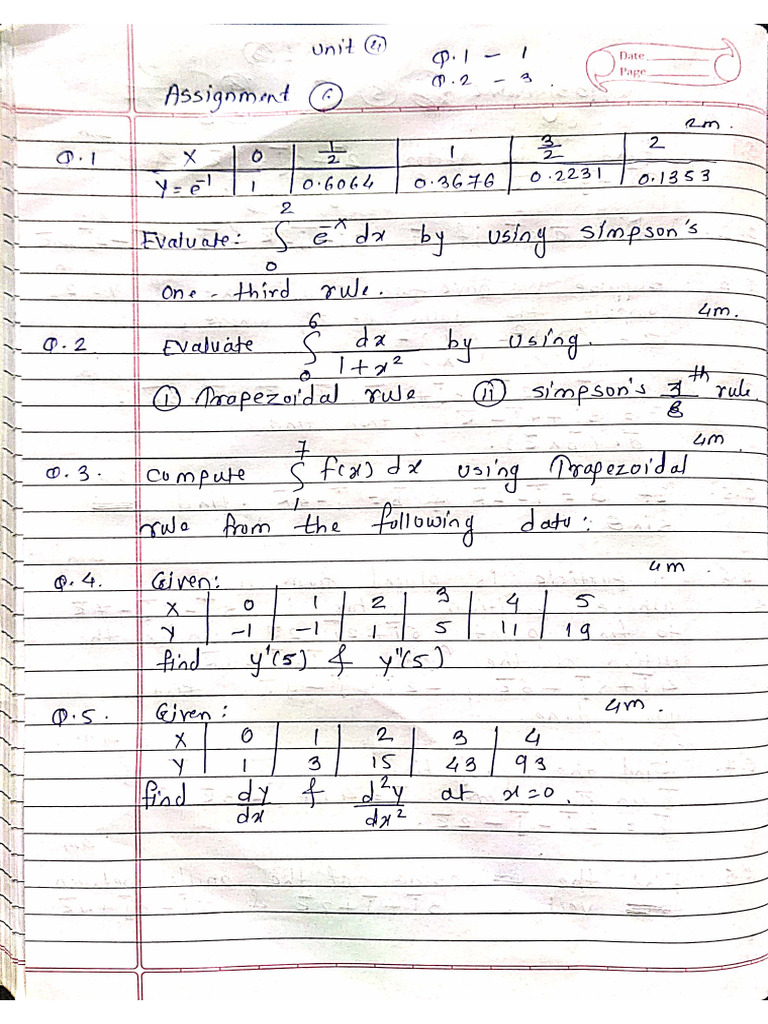 Unit ④
Q.1 – 1
Q.2 – 3
Date
Page
Assignment ⑥
2m.
Q.1 X | 0 | 1/2 | 1 | 3/2 | 2
Y = e⁻¹ | 1 | 0.6064 | 0.3676 | 0.2231 | 0.1353
Evaluate: ∫₀² e⁻ˣ dx by using Simpson's
one-third rule.
4m.
Q.2 Evaluate ∫₀⁶ dx/(1+x²) by using.
① Trapezoidal rule ② Simpson's th rule
4m
Q.3. Compute ∫₁⁷ f(x) dx using Trapezoidal
rule from the following data:
4m
Q.4. Given:
X | 0 | 1 | 2 | 3 | 4 | 5
Y | -1 | -1 | 1 | 5 | 11 | 19
find y'(5) & y"(5)
4m.
Q.5. Given:
X | 0 | 1 | 2 | 3 | 4
Y | 1 | 3 | 15 | 43 | 93
find dy/dx & d²y/dx² at x=0.